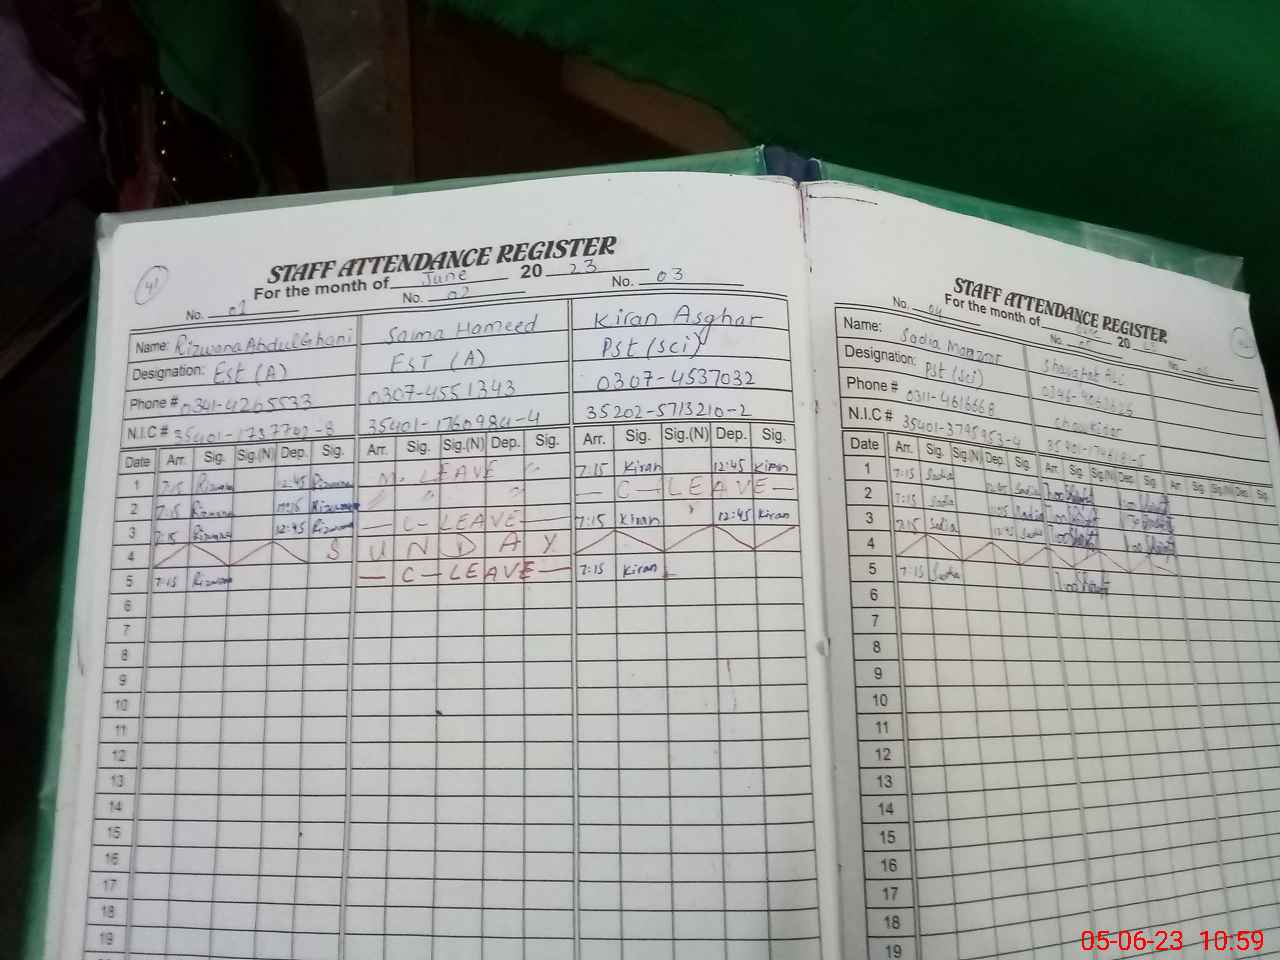 41
STAFF ATTENDANCE REGISTER
For the month of June 20 23
No. 01 No. 02 No. 03
Name: Rizwana Abdul Ghani Saima Hameed Kiran Asghar
Designation: Est (A) EST (A) Pst (sci)
Phone # 0341-4265533 0307-4551343 0307-4537032
N.I.C # 35401-1737702-8 35401-1760984-4 35202-5713210-2
Date Arr. Sig. Sig.(N) Dep. Sig. Arr. Sig. Sig.(N) Dep. Sig. Arr. Sig. Sig.(N) Dep. Sig.
1 7:15 Rizwana 12:45 Rizwana M. LEAVE 7:15 Kiran 12:45 Kiran
2 7:15 Rizwana Rizwana " " " — C — LEAVE —
3 7:15 Rizwana 12:45 Rizwana — C — LEAVE — 7:15 Kiran 12:45 Kiran
4 S U N D A Y
5 7:15 Rizwana — C — LEAVE — 7:15 Kiran
6
7
8
9
10
11
12
13
14
15
16
17
18
19
STAFF ATTENDANCE REGISTER
For the month of June 20
No. 04 No. 05 No.
Name: Sadia Manzoor Shaukat Ali
Designation: Pst (sci)
Phone # 0311-4616668 chowkidar
N.I.C # 35401-3795953-4
Date Arr. Sig. Sig.(N) Dep. Sig. Arr. Sig. Sig.(N) Dep. Sig. Arr. Sig. Sig.(N) Dep. Sig.
1 7:15 Sadia 12:45 Sadia
2 7:15 Sadia Sadia
3 7:15 Sadia 12:45 Sadia
4
5 7:15 Sadia
6
7
8
9
10
11
12
13
14
15
16
17
18
19
05-06-23 10:59